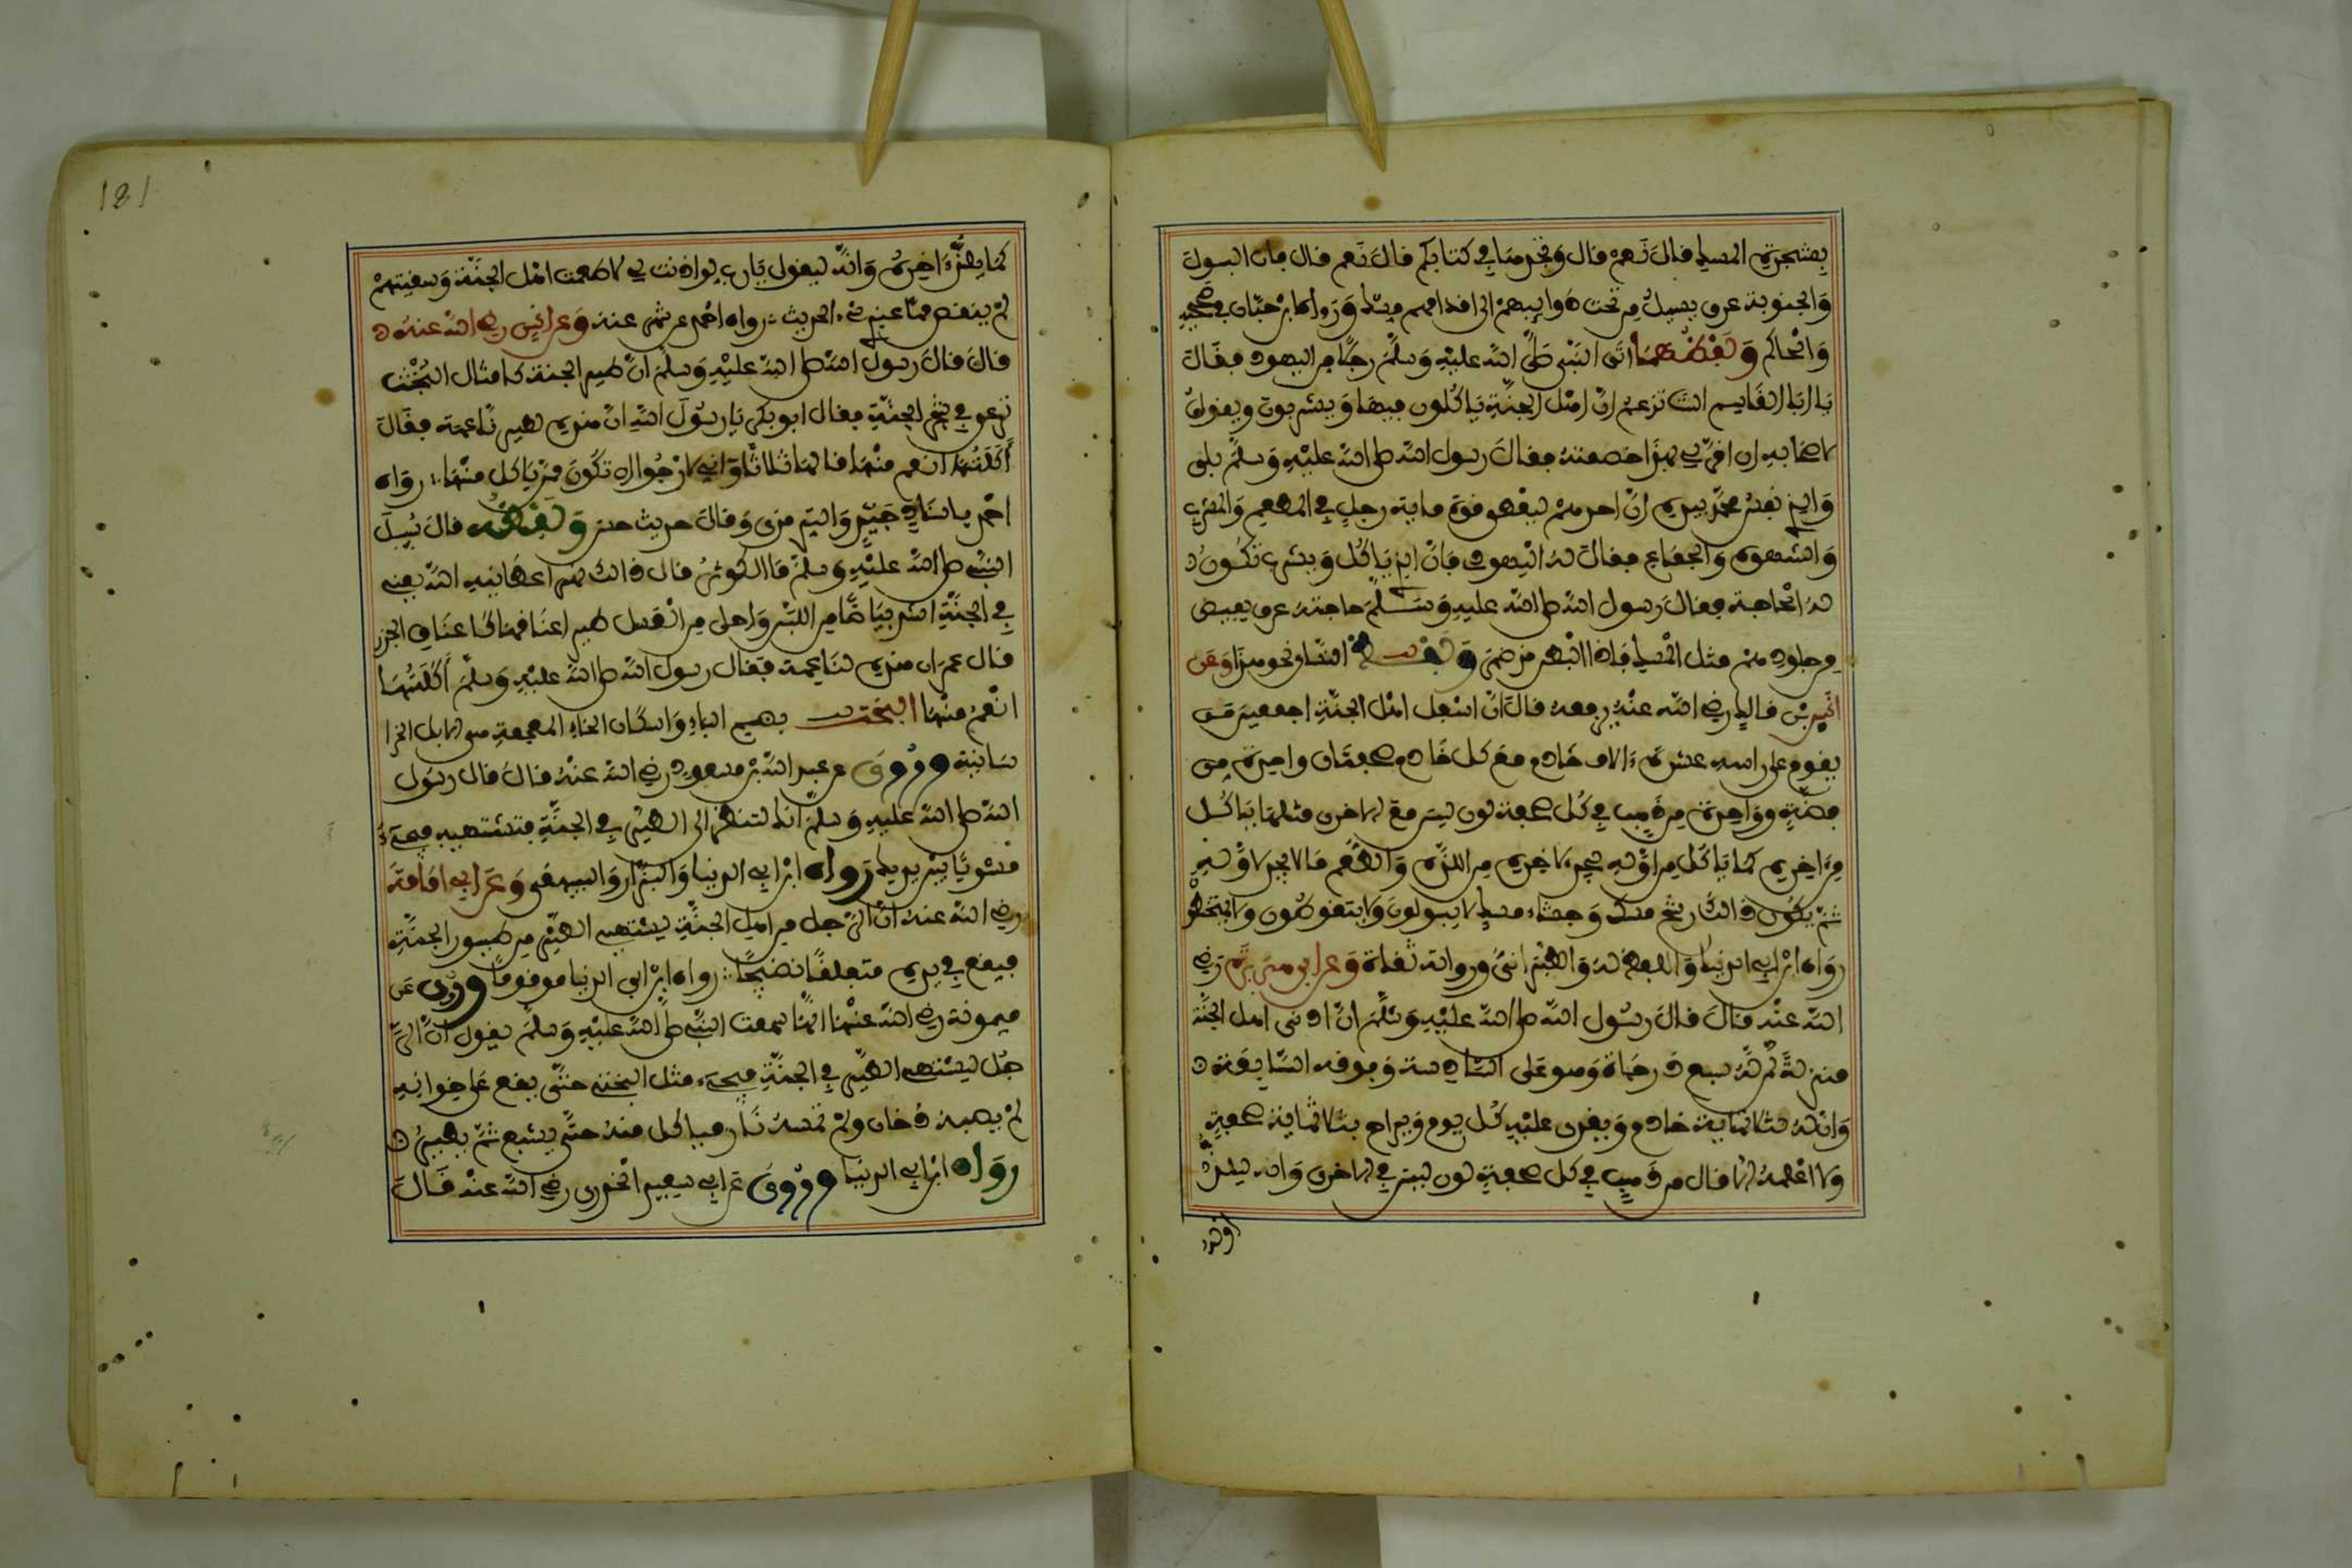 بشجرة المسك قال نعم قال وتجدها في كتابكم قال نعم قال فإن البول
والجنوبة عرق يسيل من تحت ذوايبهم الى اقدامهم مسك ورواه ابن حبان في صحيحه
والحاكم ولفظهما اتى النبي صلى الله عليه وسلم رجل من اليهود فقال
يا ابا القاسم الست تزعم ان اهل الجنة ياكلون فيها ويشربون ويقول
لاصحابه ان اقر لي بهذا خصمته فقال رسول الله صلى الله عليه وسلم بلى
والذي نفس محمد بيده ان احدهم ليعطى قوة ماية رجل في المطعم والمشرب
والشهوة والجماع فقال له اليهودي فان الذي ياكل ويشرب تكون
له الحاجة فقال رسول الله صلى الله عليه وسلم حاجته عرق يفيض
من جلودهم مثل المسك فاذا البطن قد ضمر ولفظ النسائي نحو هذا وعن
انس بن مالك رضي الله عنه يرفعه قال ان اسفل اهل الجنة اجمعين من
يقوم على راسه عشرة ءالاف خادم مع كل خادم صحفتان واحدة من
فضة وواحدة من ذهب في كل صحفة لون ليس مع الاخرى مثلها ياكل
من ءاخره كما ياكل من اوله يجد لاخره من اللذة والطعم ما لا يجد لاوله
ثم يكون ذالك رشح مسك وجشاء مسك لا يبولون ولا يتغوطون ولا يتمخطون
رواه ابن ابي الدنيا واللفظ له والطبراني ورواته ثقاة وعن ابي هريرة رضي
الله عنه قال قال رسول الله صلى الله عليه وسلم ان ادنى اهل الجنة
منزلة ان له سبع درجاة وهو على السادسة وفوقه السابعة
وان له ثلاثماية خادم ويغدى عليه كل يوم ويراح بثلاثماية صحفة
ولا اعلمه الا قال من ذهب في كل صحفة لون ليس في الاخرى وانه ليلذ
اوله
181
كما يلذ ءاخره وانه ليقول يارب لو اذنت لي لاطعمت اهل الجنة وسقيتهم
لم ينقص مما عندي شيء الحديث رواه احمد عن شهر عنه وعن انس رضي الله عنه
قال قال رسول الله صلى الله عليه وسلم ان طير الجنة كامثال البخت
ترعى في شجر الجنة فقال ابو بكر يا رسول الله ان هذه لطير ناعمة فقال
أكلتها انعم منها قالها ثلاثا واني لارجوا ان تكون ممن ياكل منها رواه
احمد باسناد جيد والترمذي وقال حديث حسن ولفظه قال سيل
النبي صلى الله عليه وسلم ما الكوثر قال ذالك نهر اعطانيه الله يعني
في الجنة اشد بياضا من اللبن واحلى من العسل طير اعناقها كاعناق الجزر
قال عمر ان هذه لناعمة فقال رسول الله صلى الله عليه وسلم أكلتها
انعم منها البخت بضم الباء واسكان الخاء المعجمة هي الابل الخرا
سانية وروي عن عبد الله بن مسعود رضي الله عنه قال قال رسول
الله صلى الله عليه وسلم انك لتنظر الى الطير في الجنة فتشتهيه فيجيء
مشويا بين يديك رواه ابن ابي الدنيا والبزار والبيهقي وعن ابي امامة
رضي الله عنه ان الرجل من اهل الجنة ليشتهي الطير من طيور الجنة
فيقع في يده متعلقا نضيجا رواه ابن ابي الدنيا موقوفا وروي عن
ميمونة رضي الله عنها انها سمعت النبي صلى الله عليه وسلم يقول ان الر
جل ليشتهي الطير في الجنة فيجيء مثل البختي حتى يقع على خوانه
لم يصبه دخان ولم تمسه نار فياكل منه حتى يشبع ثم يطير
رواه ابن ابي الدنيا وروي عن ابي سعيد الخدري رضي الله عنه قال